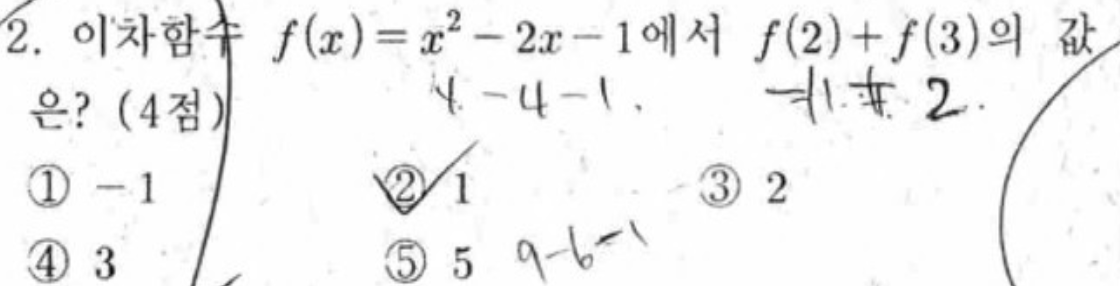 2. 이차함수 f(x)=x²-2x-1에서 f(2)+f(3)의 값
4-4-1. -1+2.
은? (4점)
① -1 ② 1 ③ 2
④ 3 ⑤ 5 9-6-1